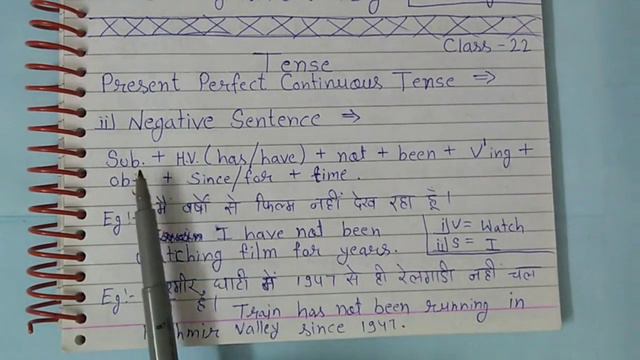 Class-22
Tense
Present Perfect Continuous Tense ⇒
ii) Negative Sentence ⇒
Sub. + H.V. (has/have) + not + been + V'ing +
ob + since/for + time.
Eg:- मैं वर्षों से फिल्म नहीं देख रहा हूँ।
I have not been
watching film for years.
i) V = Watch
ii) S = I
Eg:- घाटी में 1947 से ही रेलगाडी नहीं चल
है। Train has not been running in
Valley since 1947.